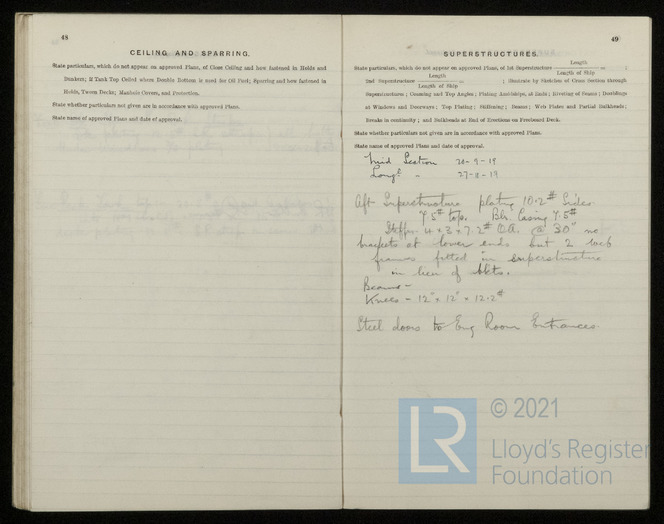 48
CEILING AND SPARRING.
State particulars, which do not appear on approved Plans, of Close Ceiling and how fastened in Holds and
Bunkers; if Tank Top Ceiled where Double Bottom is used for Oil Fuel; Sparring and how fastened in
Holds, Tween Decks; Manhole Covers, and Protection.
State whether particulars not given are in accordance with approved Plans.
State name of approved Plans and date of approval.
49
SUPERSTRUCTURES.
State particulars, which do not appear on approved Plans, of 1st Superstructure Length / Length of Ship = ;
2nd Superstructure Length / Length of Ship = ; Illustrate by Sketches of Cross Section through
Superstructures; Coaming and Top Angles; Plating Amidships, at Ends; Riveting of Seams; Doublings
at Windows and Doorways; Top Plating; Stiffening; Beams; Web Plates and Partial Bulkheads;
Breaks in continuity; and Bulkheads at End of Erections on Freeboard Deck.
State whether particulars not given are in accordance with approved Plans.
State name of approved Plans and date of approval.
Mid Section 20-9-19
Longl " 27-8-19
Aft Superstructure plating 10.2# Sides
7.5# top. Blr. Casing 7.5#
Stiffrs 4 x 3 x 7.2# O.A. @ 30" no
brackets at lower ends but 2 web
frames fitted in superstructure
in lieu of bkts.
Beams -
Knees - 12" x 12" x 12.2#
Steel doors to Eng Room Entrances.
LR
© 2021
Lloyd's Register
Foundation